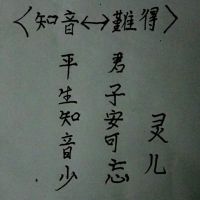 〈知音↔難得〉
平生知音少
君子安可忘
灵儿